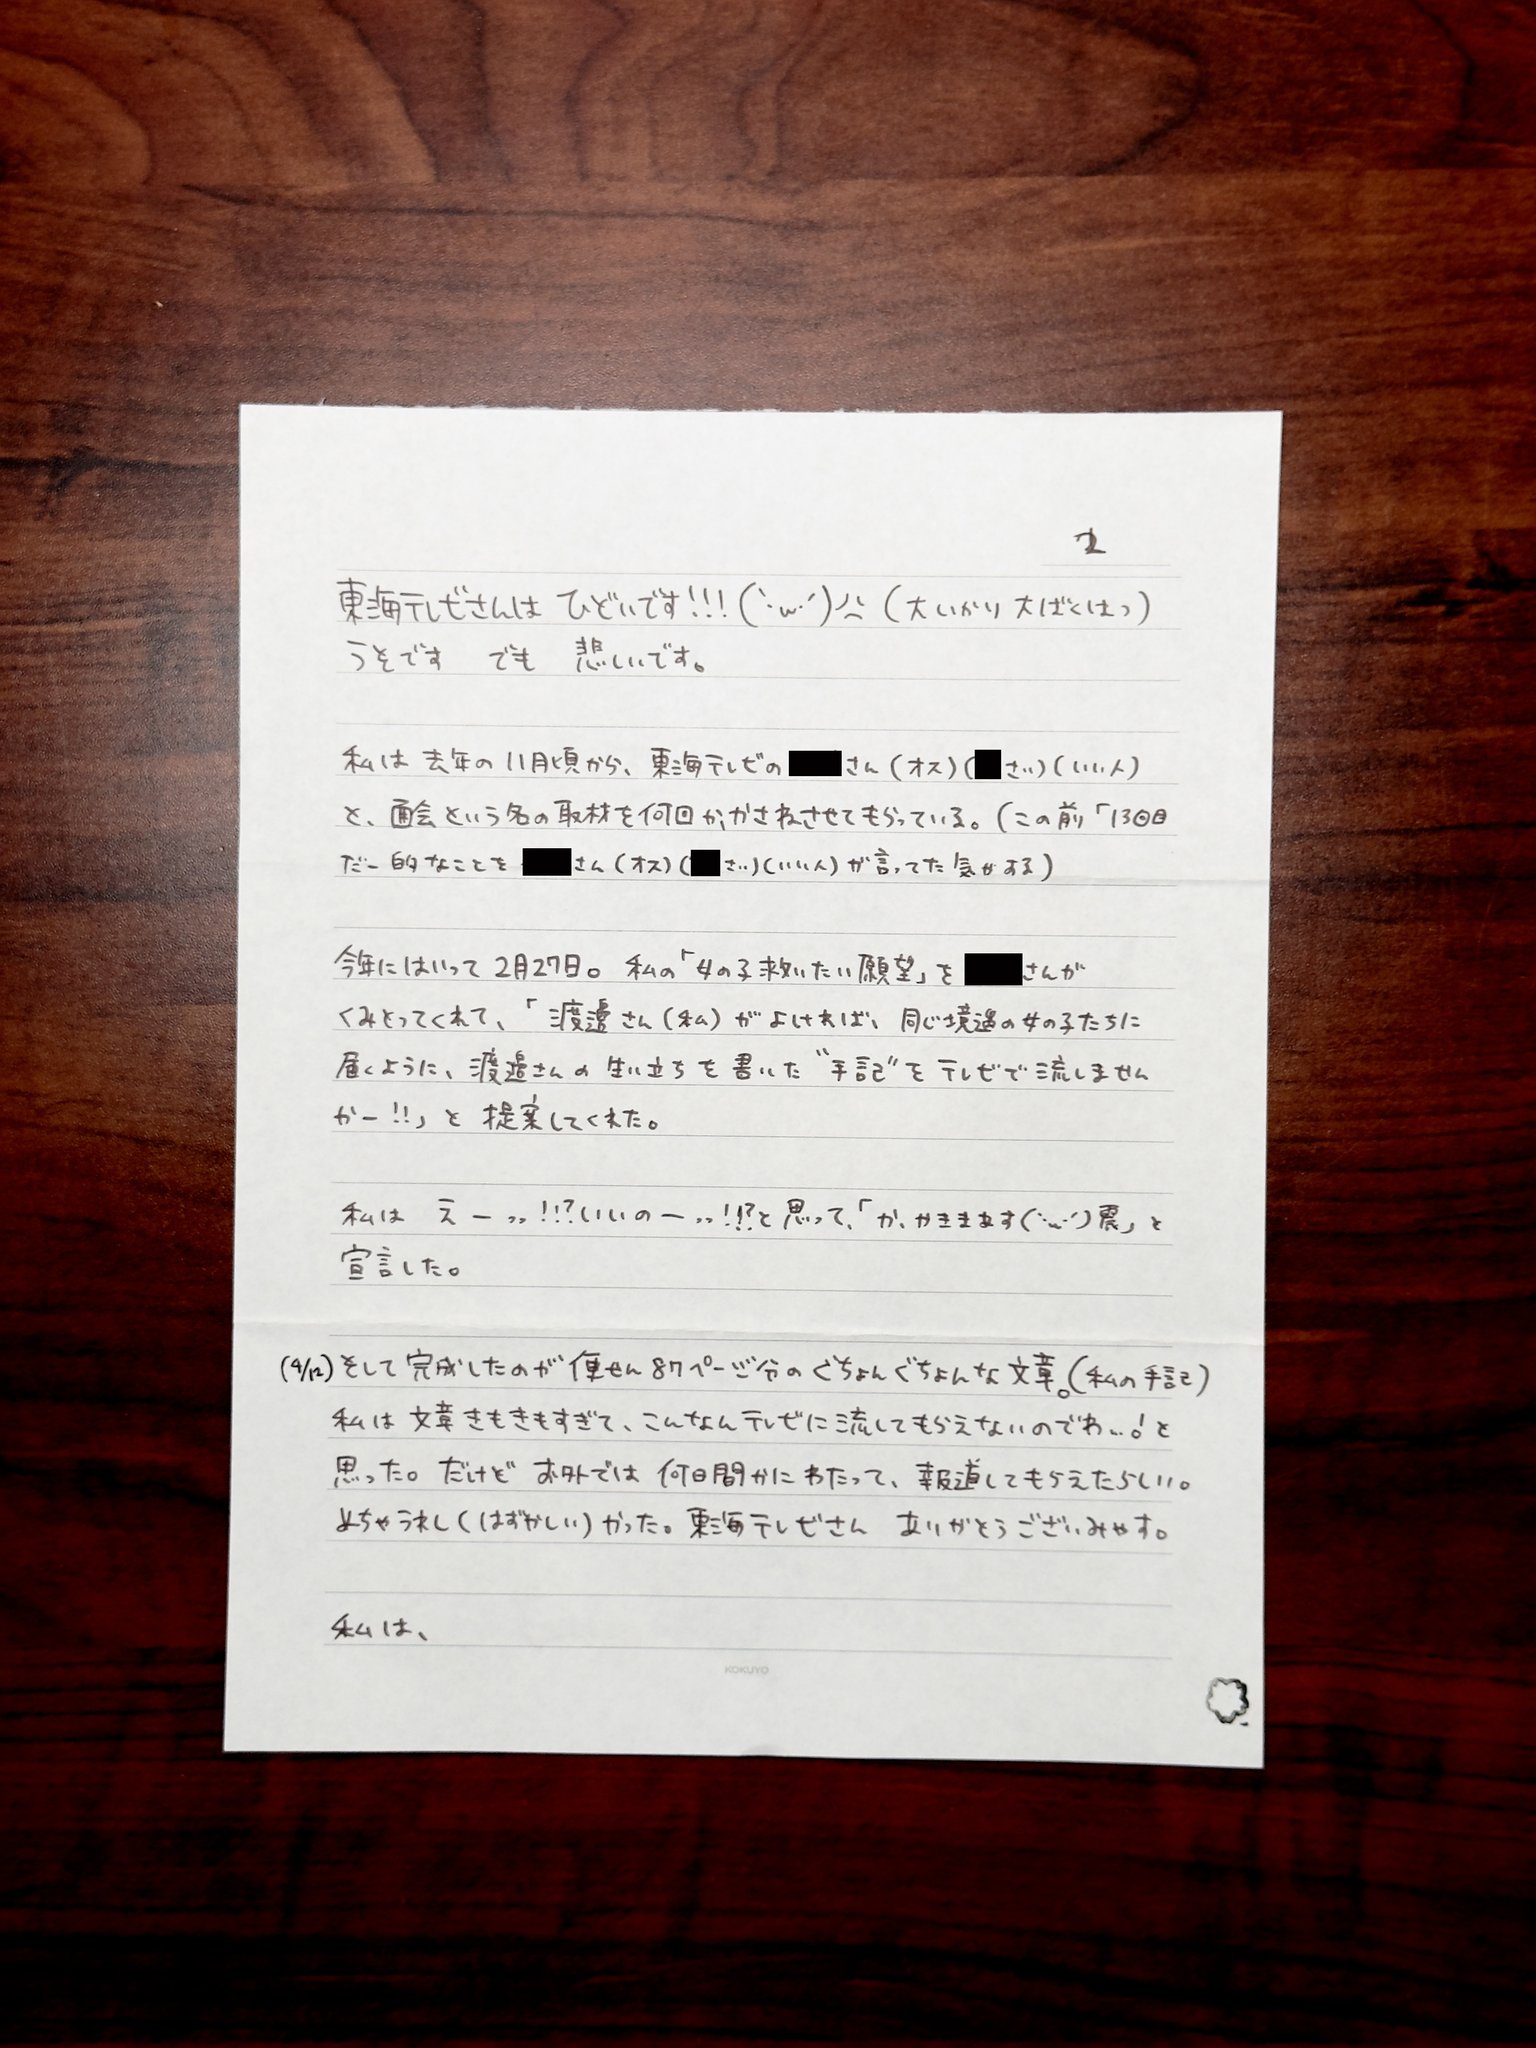 2
東海テレビさんは ひどいです!!!(`･ω･´) (大いかり 大ばくはっ)
うそです でも 悲しいです。
私は 去年の 11月頃から、東海テレビの さん(オス)( さい)(いい人)
と、面会という名の取材を何回か、かさねさせてもらっている。(この前「13回目
だー的なことを さん(オス)( さい)(いい人)が言ってた気がする)
今年にはいって 2月27日。 私の「女の子救いたい願望」を さんが
くみとってくれて、「渡邊さん(私)がよければ、同じ境遇の女の子たちに
届くように、渡邊さんの 生い立ち を 書いた "手記"を テレビで流しません
かー!!」と 提案してくれた。
私は えーッッ!!?いいのーッッ!!?と 思って、「か、かききます(`･ω･´)震」と
宣言した。
(4/12) そして 完成したのが 便せん 87ページ分の ぐちょんぐちょんな 文章。(私の手記)
私は 文章きもきもすぎて、こんなんテレビに流してもらえないのでわ…!と
思った。だけど お外では 何日間かに わたって、報道してもらえたらしい。
めちゃうれし(はずかしい)かった。東海テレビさん ありがとうございみゃす。
私は、
KOKUYO